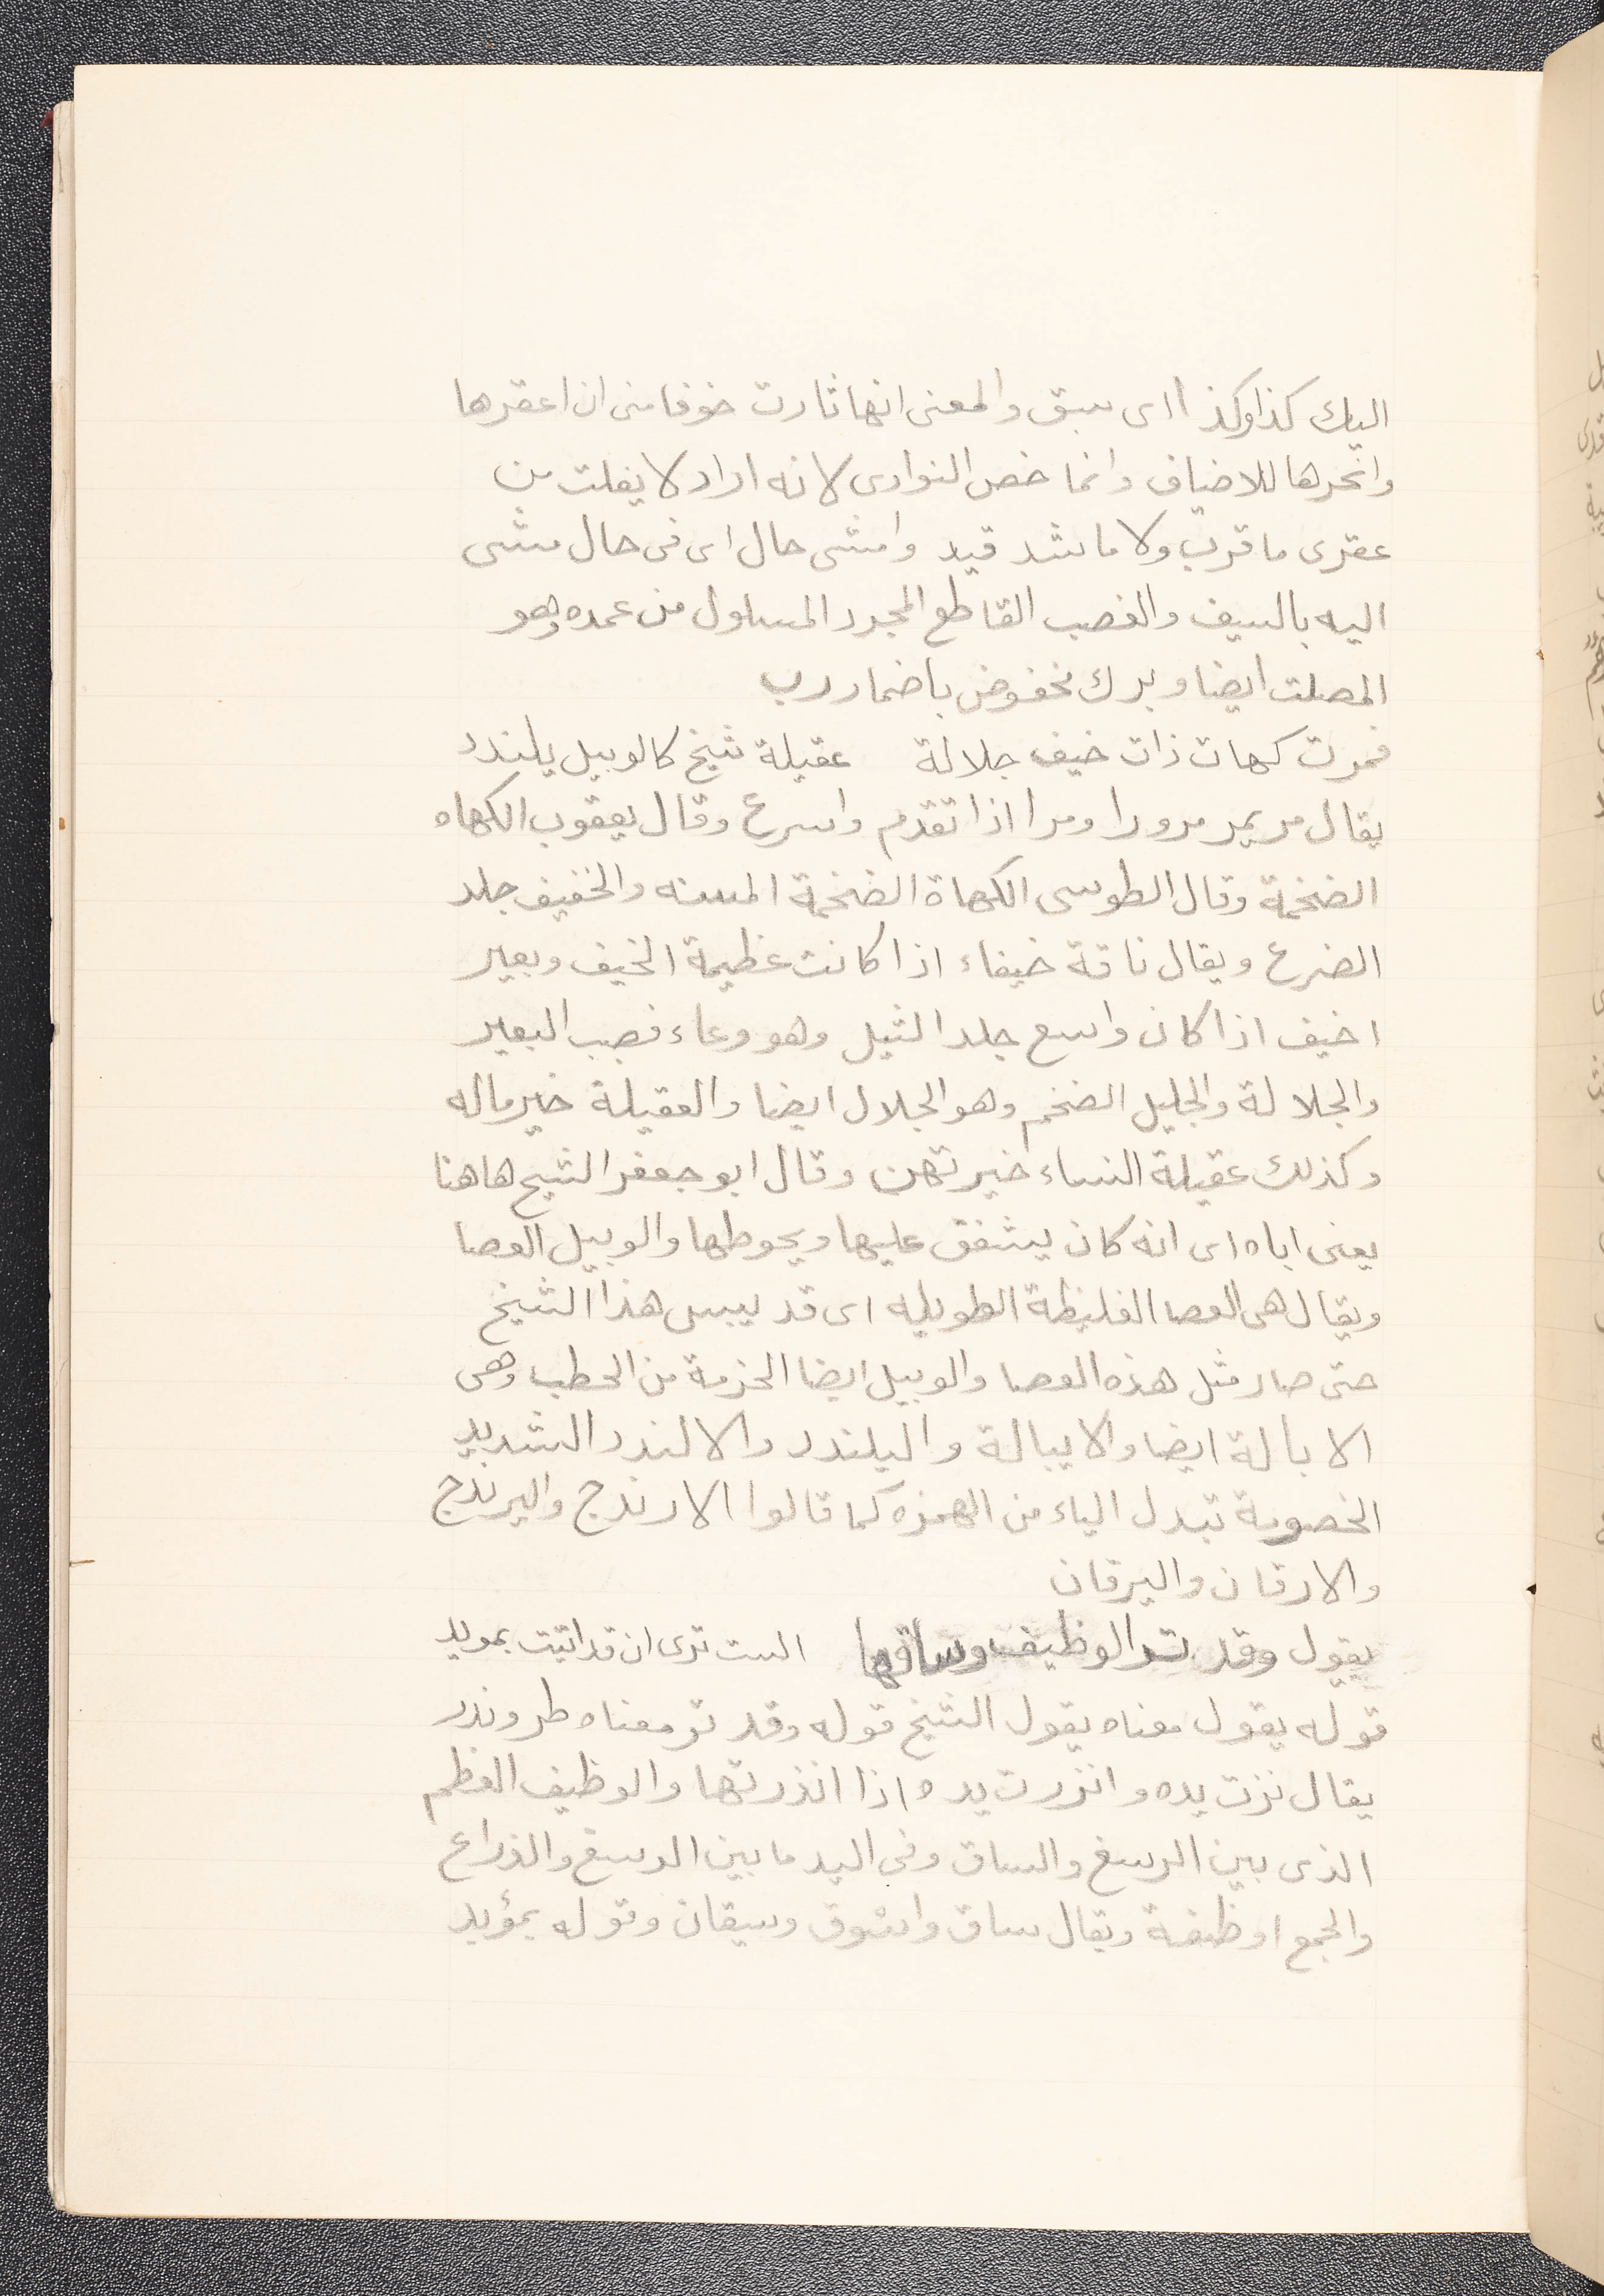 اليك كذا وكذا اى سبق والمعنى انها ثارت خوفا منى ان اعقرها
وانحرها للاضياف وانما خص النوادى لانه اراد لا يفلت من
عقرى ما قرب ولا ما شد قيد وامشى حال اى فى حال مشى
اليه بالسيف والغصب القاطع المجرد المسلول من عمده وهو
المصلت ايضا وبرك مخفوض باضمار رب
فمرت كهات ذات خيف جلالة عقيلة شيخ كالوبيل يلندد
يقال مر يمر مرورا ومرا اذا تقدم واسرع وقال يعقوب الكهاه
الضخمة وقال الطوسى الكهاة الضخمة المسنه والخفيف جلد
الضرع ويقال ناقة خيفاء اذا كانت عظيمة الخيف وبعير
اخيف اذا كان واسع جلد الثيل وهو وعاء قصب البعير
والجلالة والجليل الضخم وهو الجلال ايضا والعقيلة خير ماله
وكذلك عقيلة النساء خيرتهن وقال ابو جعفر الشيح هاهنا
يعنى اباه اى انه كان يشفق عليها ويحوطها والوبيل العصا
ويقال هى العصا الغليظة الطويله اى قد ييبس هذا الشيخ
حتى صار مثل هذه العصا والوبيل ايضا الحزمة من الحطب وهى
الابالة ايضا والايبالة واليلندد والالندد الشديد
الخصومة تبدل الياء من الهمزه كما قالوا الارندج واليرندج
والارقان واليرقان
يقول وقد تر الوظيف وساقها الست ترى ان قد اتيت بمويد
قوله يقول معناه يقول الشيخ قوله وقد تر معناه طر وندر
يقال نزت يده وانزرت يده اذا انذرتها والوظيف العظم
الذى بين الرسغ والساق وفى اليد ما بين الرسغ والذراع
والجمع اوظفة ويقال ساق واسوق وسيقان وقوله بمؤيد